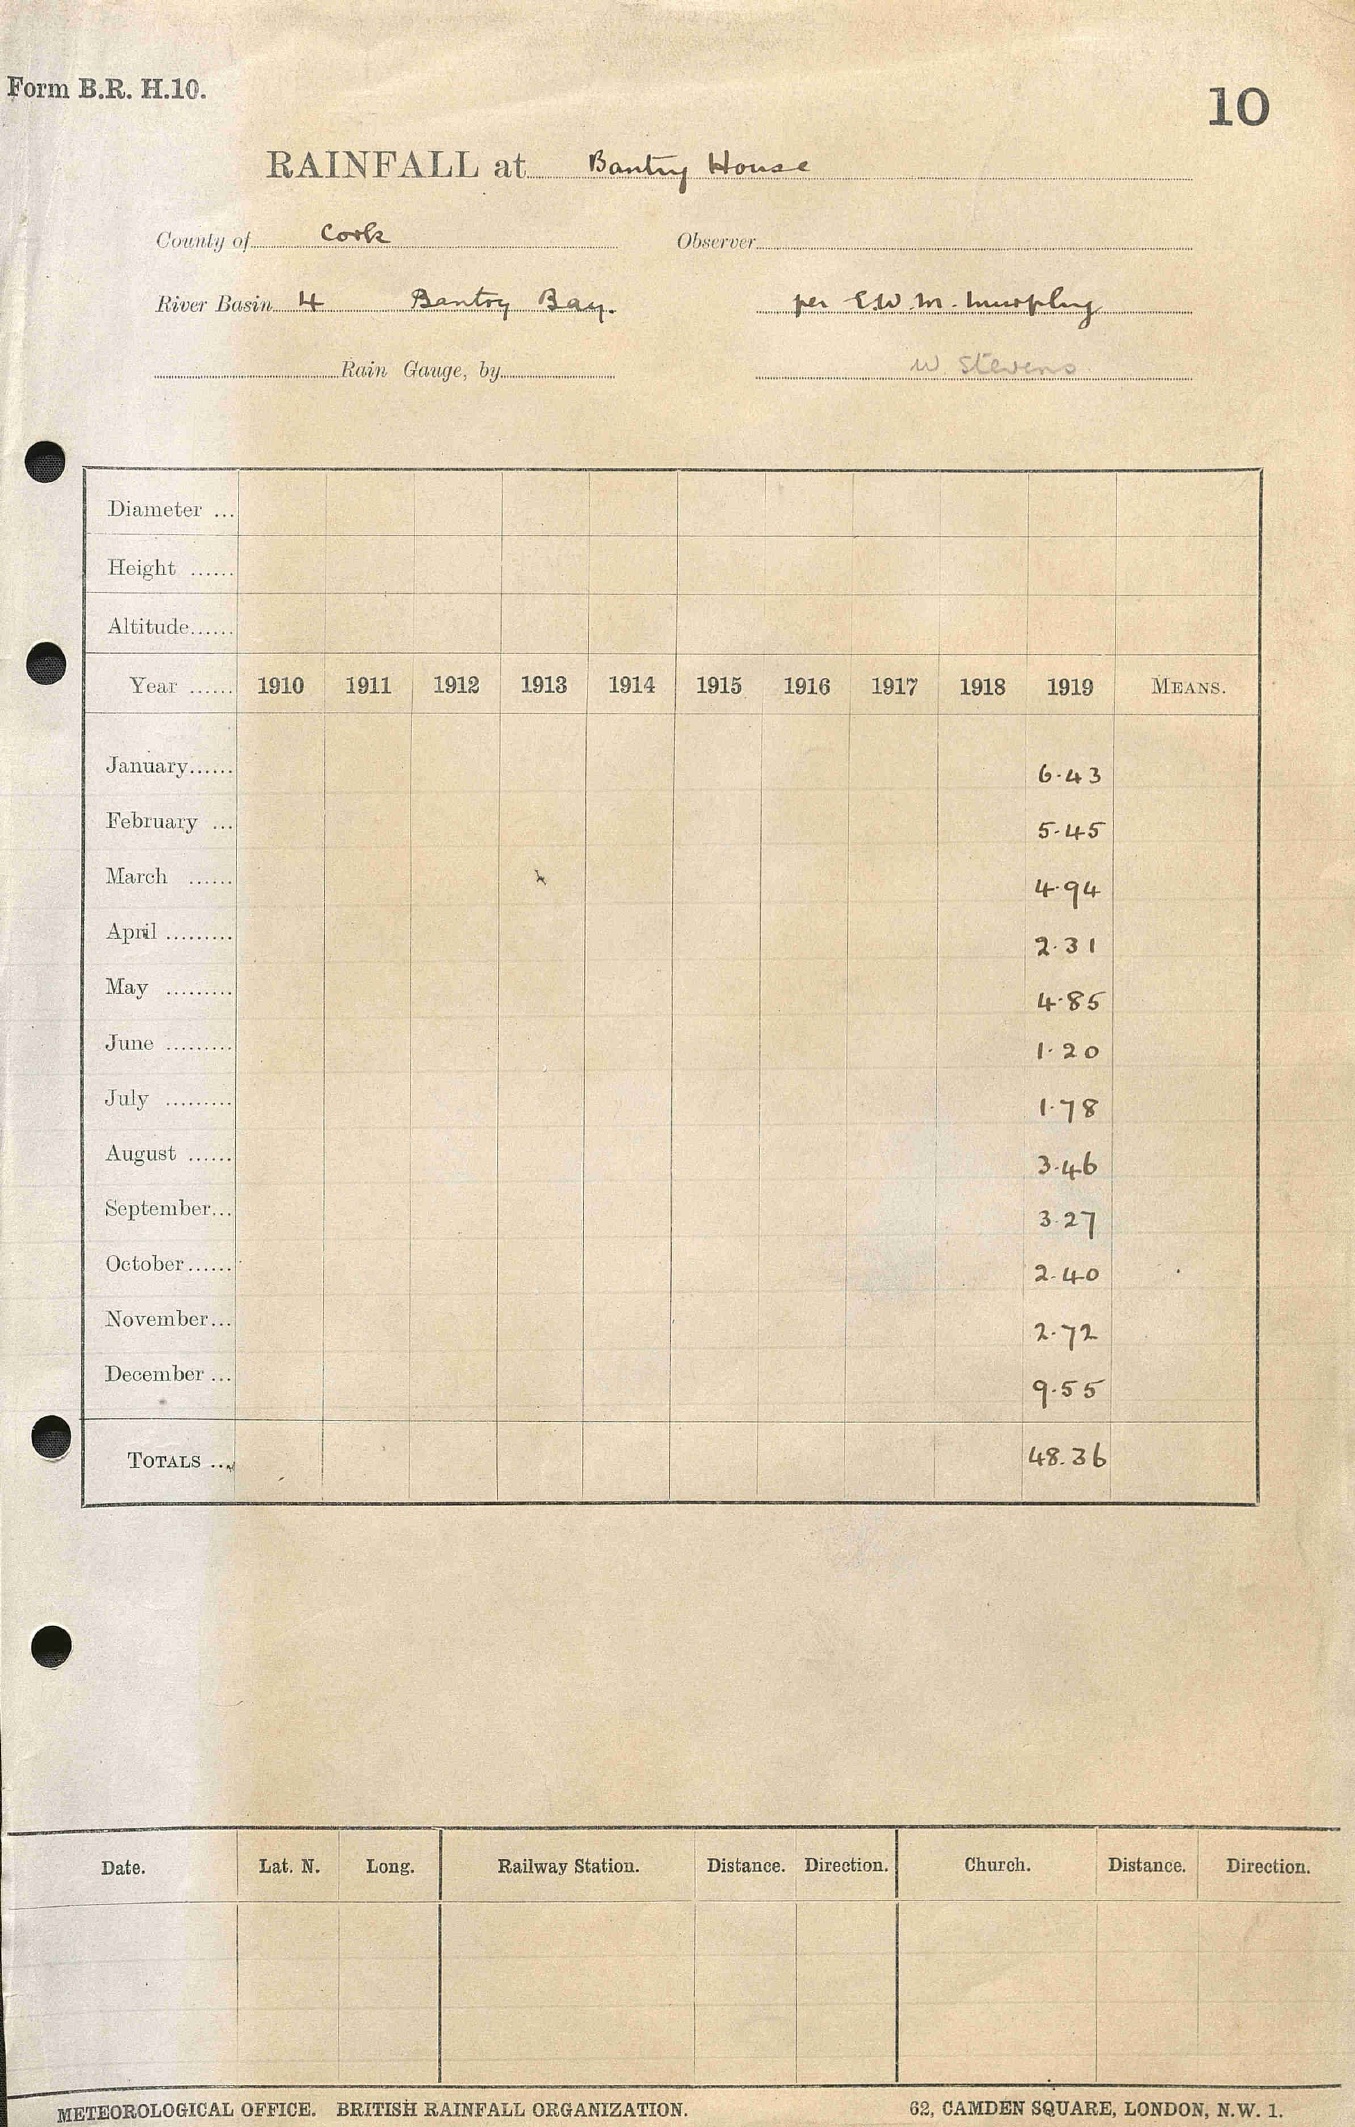 Form B.R. H.10.
10
RAINFALL at Bantry House
County of Cork Observer
River Basin 4 Bantry Bay. per E.W.M. Murphy
Rain Gauge, by W Stevens
Diameter ...
Height ......
Altitude......
Year ...... 1910 1911 1912 1913 1914 1915 1916 1917 1918 1919 MEANS.
January...... 6.43
February ... 5.45
March ...... 4.94
April ......... 2.31
May ......... 4.85
June ......... 1.20
July ......... 1.78
August ...... 3.46
September... 3.27
October...... 2.40
November... 2.72
December ... 9.55
TOTALS ... 48.36
Date. Lat. N. Long. Railway Station. Distance. Direction. Church. Distance. Direction.
METEOROLOGICAL OFFICE. BRITISH RAINFALL ORGANIZATION. 62, CAMDEN SQUARE, LONDON, N.W. 1.